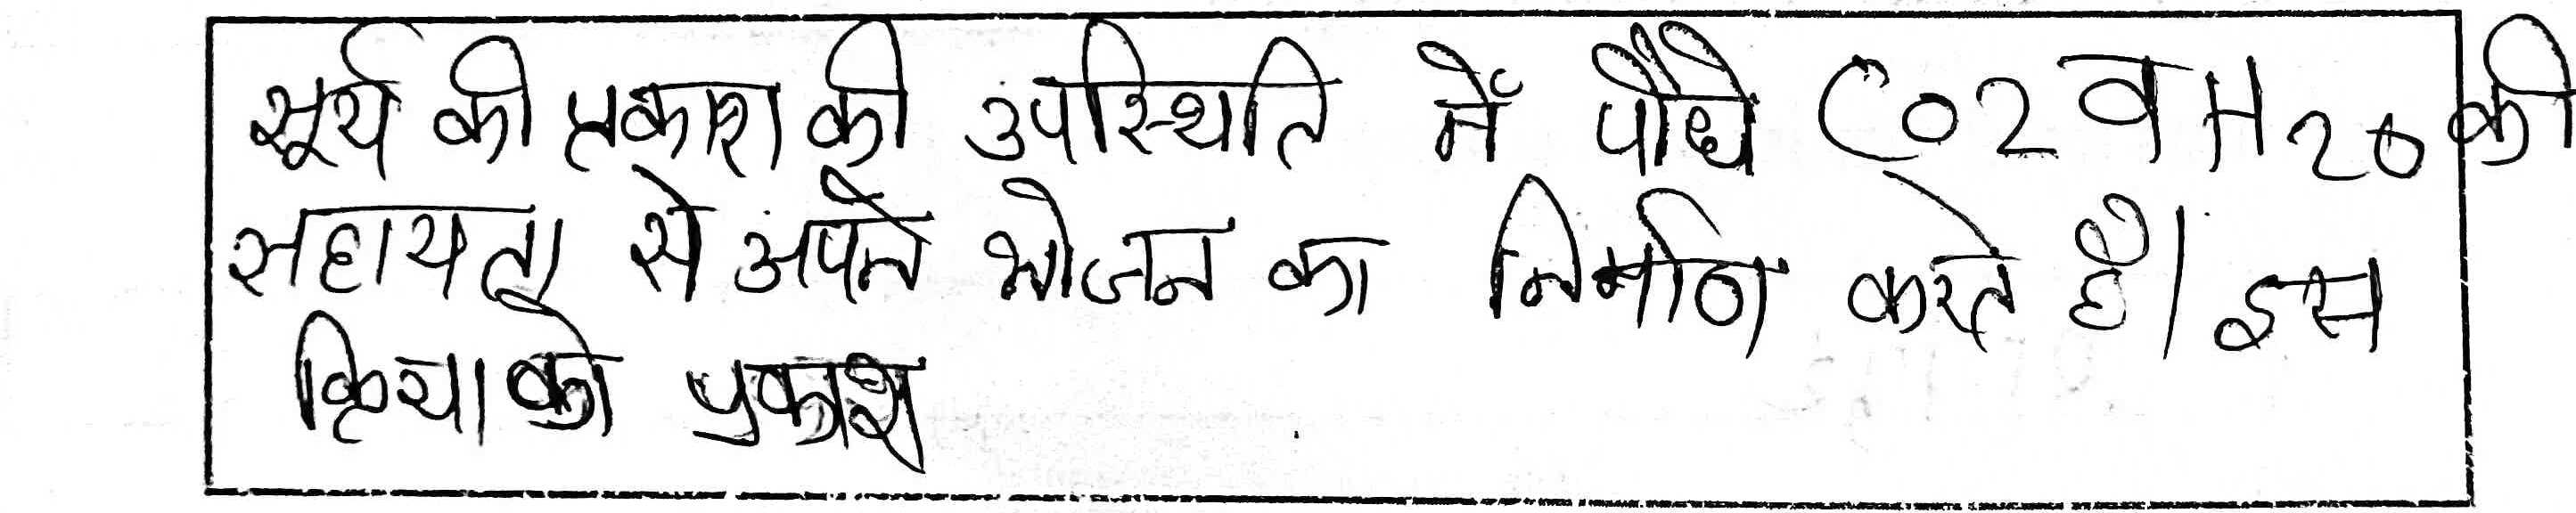 सूर्य की प्रकाश की उपस्थिति में पौधे CO2 व H2O की
सहायता से अपने भोजन का निर्माण करते हैं। इस
क्रिया को प्रकाश